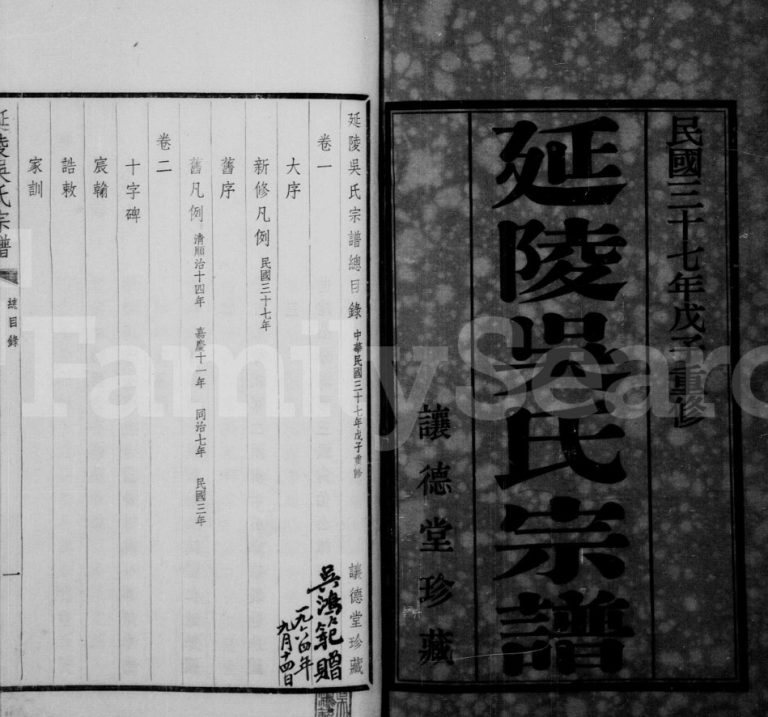 民國三十七年戊子重修
延陵吳氏宗譜
讓德堂珍藏
延陵吳氏宗譜總目錄 中華民國三十七年戊子重修 讓德堂珍藏
卷一
大序
新修凡例 民國三十七年
舊序
舊凡例 清順治十四年 嘉慶十一年 同治七年 民國三年
卷二
十字碑
宸翰
誥敕
家訓
延陵吳氏宗譜 總目錄 一
吳鴻範贈
一九六四年
九月十四日
FamilySearc